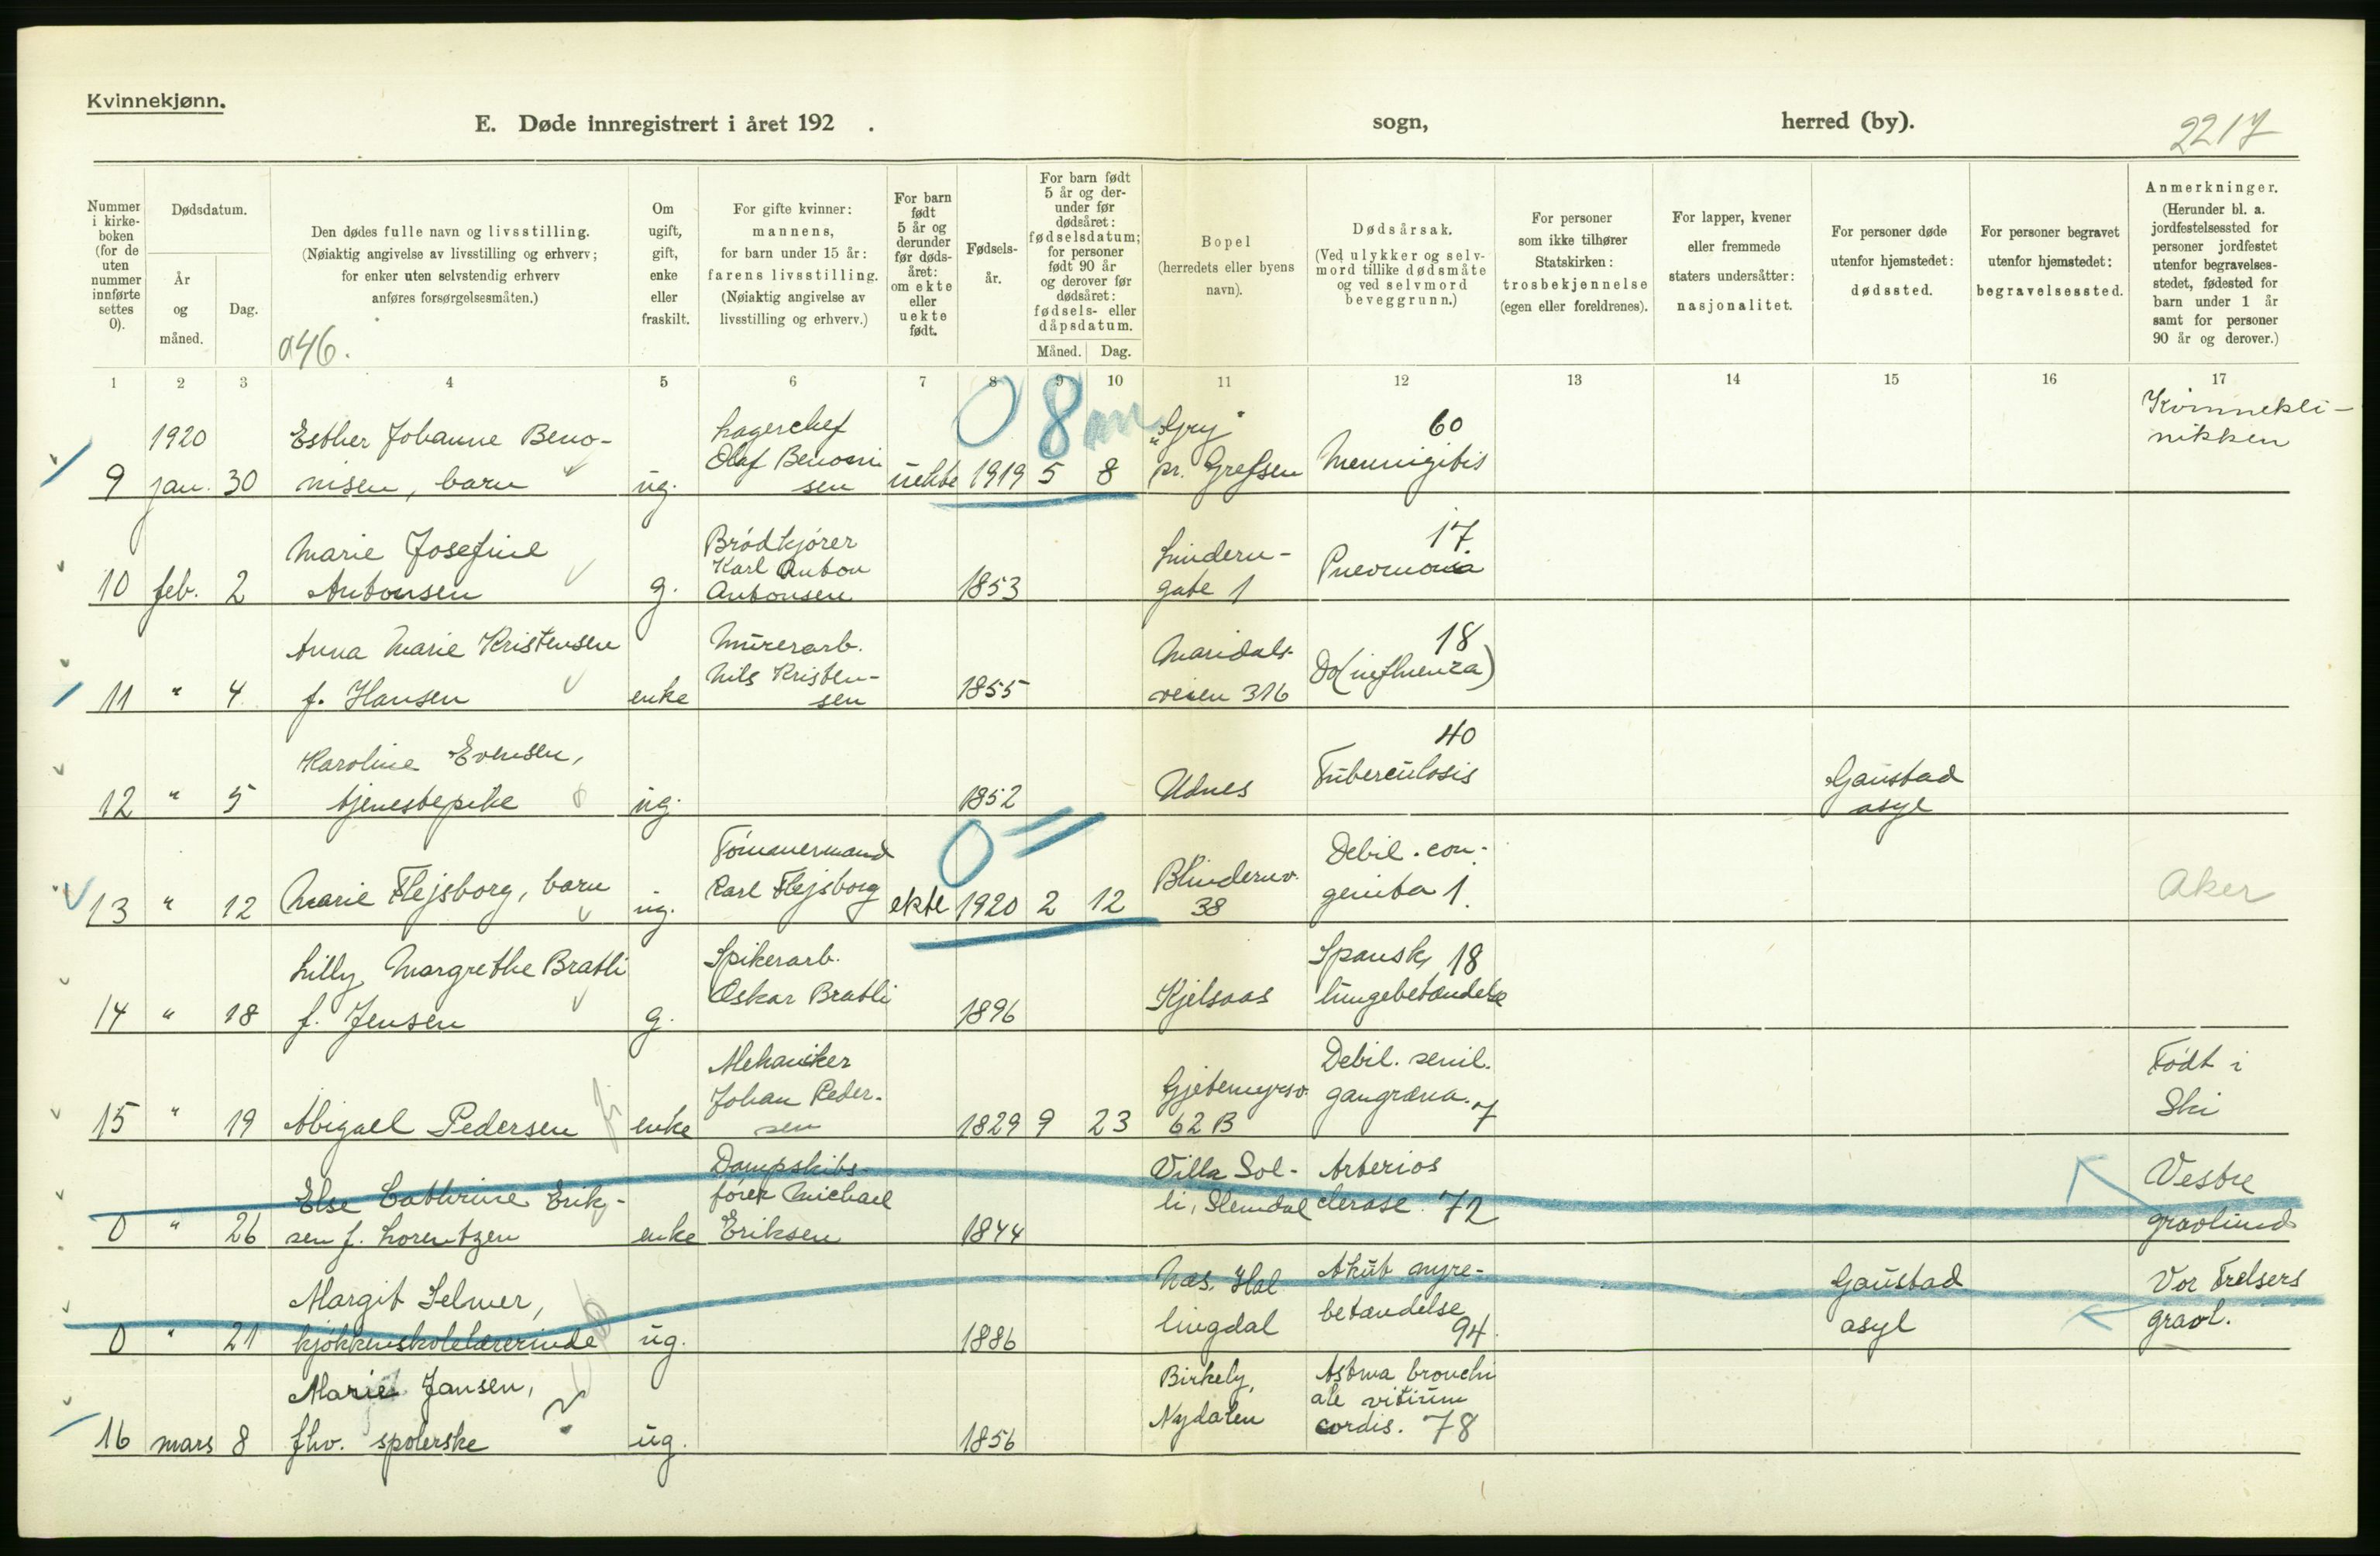 Kvinnekjønn.
E. Døde innregistrert i året 192 .
sogn,
herred (by).
2217
Nummer i kirke-boken (for de uten nummer innførte settes 0).
Dødsdatum.
År og måned.
Dag.
Den dødes fulle navn og livsstilling.
(Nøiaktig angivelse av livsstilling og erhverv;
for enker uten selvstendig erhverv
anføres forsørgelsesmåten.)
a46.
Om ugift, gift, enke eller fraskilt.
For gifte kvinner:
mannens,
for barn under 15 år:
farens livsstilling.
(Nøiaktig angivelse av
livsstilling og erhverv.)
For barn født 5 år og derunder før døds-året: om ekte eller uekte født.
Fødsels-år.
For barn født 5 år og der-under før dødsåret: fødselsdatum; for personer født 90 år og derover før dødsåret: fødsels- eller dåpsdatum.
Måned.
Dag.
Bopel
(herredets eller byens
navn).
Dødsårsak.
(Ved ulykker og selv-
mord tillike dødsmåte
og ved selvmord
beveggrunn.)
For personer
som ikke tilhører
Statskirken:
trosbekjennelse
(egen eller foreldrenes).
For lapper, kvener
eller fremmede
staters undersåtter:
nasjonalitet.
For personer døde
utenfor hjemstedet:
dødssted.
For personer begravet
utenfor hjemstedet:
begravelsessted.
Anmerkninger.
(Herunder bl. a.
jordfestelsessted for
personer jordfestet
utenfor begravelses-
stedet, fødested for
barn under 1 år
samt for personer
90 år og derover.)
1 2 3 4 5 6 7 8 9 10 11 12 13 14 15 16 17
0 8 m
1920 Esther Johanne Beno- Lagerchef "Gry" 60 Kvinnekli-
Olaf Benoni nikken
9 jan. 30 nisen, barn ug. sen uekte 1919 5 8 pr. Grefsen Mennigitis
Marie Josefine Brødkjører Lindern- 17.
Karl Anton Pneomonia
10 feb. 2 Antonsen g. Antonsen 1853 gate 1
Anna Marie Kristensen Murerarb. Maridals- 18
Nils Kristen- Do (influenza)
11 " 4 f. Hansen enke sen 1855 veien 316
Karoline Evensen, 40
Tuberculosis Gaustad
12 " 5 tjenestepike ug. 1852 Udnes asyl
0 "
Tømmermand Debil. con-
13 " 12 Marie Flejsborg, barn ug. Karl Flejsborg ekte 1920 2 12 Blindernv. 38 genita 1. Aker
Lilly Margrethe Bratli Spikerarb. Spansk 18
Oskar Bratli Kjelsaas lungebetændelse
14 " 18 f. Jensen g. 1896
Mekaniker Debil. senil. Født i
Johan Peder- Gjetemyrsv. gangræna. 7 Ski
15 " 19 Abigael Pedersen enke sen 1829 9 23 62 B
Dampskibs- Villa Sol- Arterios Vestre
Else Cathrine Erik- fører Michael li, Slemdal clerose. 72
0 " 26 sen f. Lorentzen enke Eriksen 1844 gravlund
Margit Selmer, Næs, Hal Akut nyre- Gaustad Vor Frelsers
lingdal betændelse asyl gravl.
0 " 21 kjøkkenskolelærerinde ug. 1886 94.
Marie Jansen, Birkely, Astma bronchi
ale vitium
Nydalen cordis. 78
16 mars 8 fhv. spolerske ug. 1856